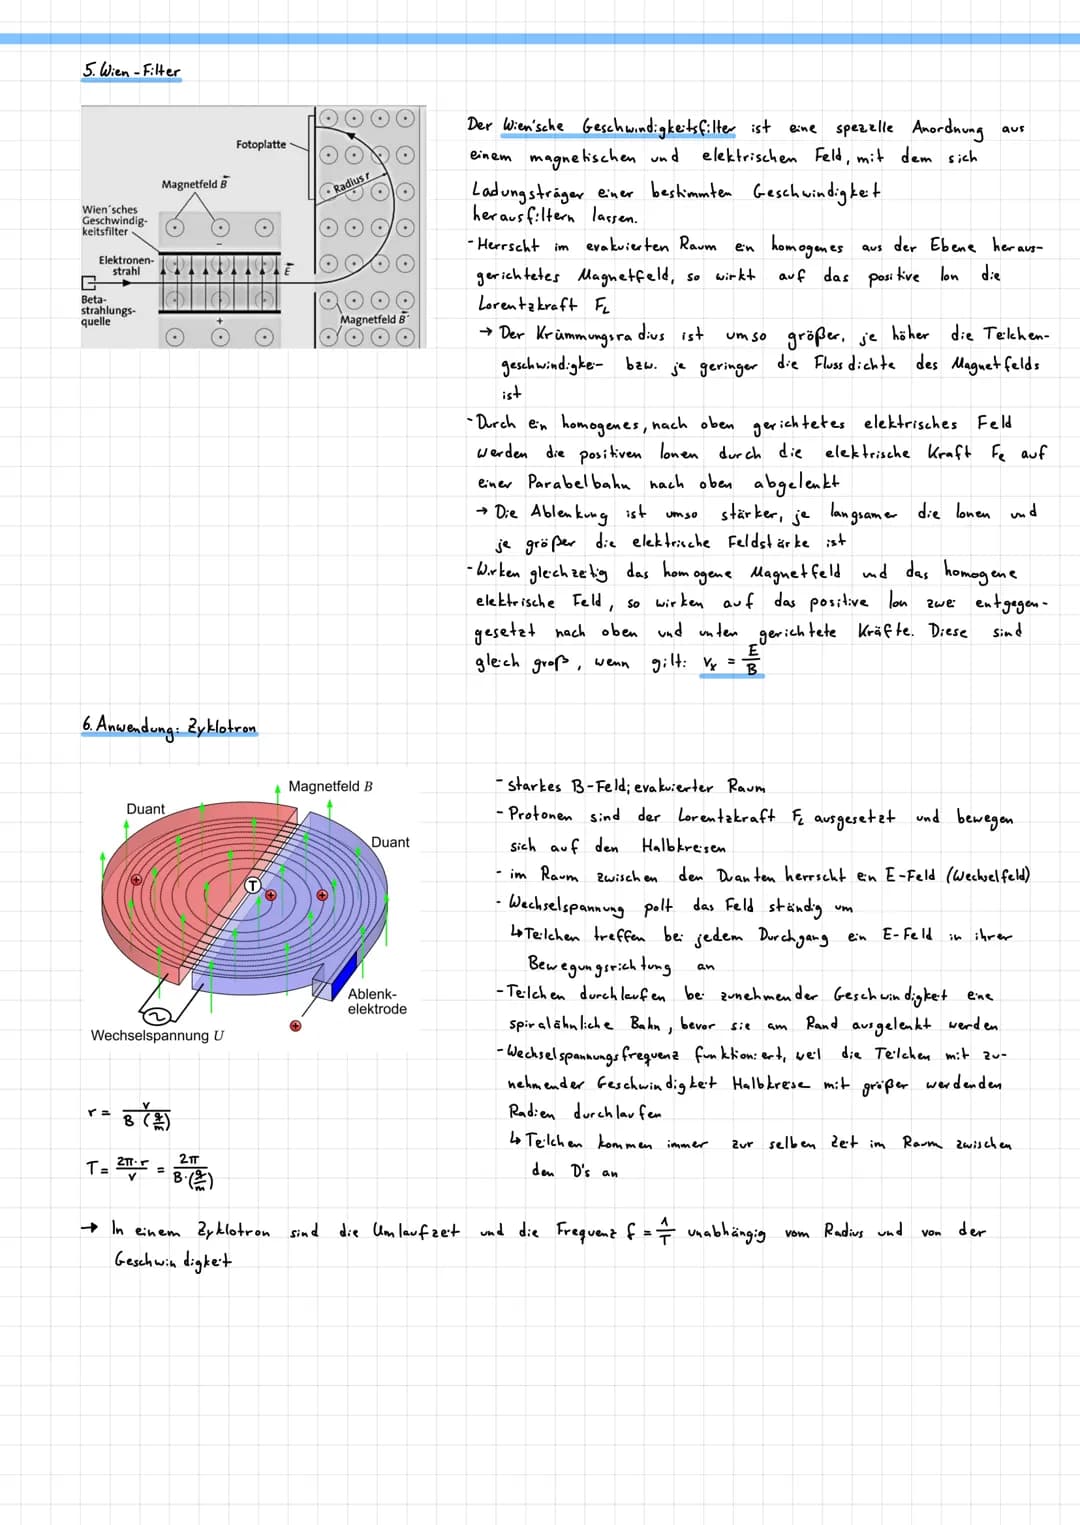 5. Wien-Filter
Fotoplatte
Magnetfeld B
Radius r
Wien'sches
Geschwindig-
keitsfilter
Elektronen-
strahl
E
Beta-
strahlungs-
quelle
Magnetfeld B
Der Wien'sche Geschwindigkeitsfilter ist eine spezielle Anordnung aus
einem magnetischen und elektrischen Feld, mit dem sich
Ladungsträger einer bestimmten Geschwindigkeit
herausfiltern lassen.
- Herrscht im evakuierten Raum ein homogenes aus der Ebene heraus-
gerichtetes Magnetfeld, so wirkt auf das positive Ion die
Lorentzkraft F_L
→ Der Krümmungsradius ist umso größer, je höher die Teilchen-
geschwindigkei- bzw. je geringer die Flussdichte des Magnetfelds
ist
- Durch ein homogenes, nach oben gerichtetes elektrisches Feld
werden die positiven Ionen durch die elektrische Kraft Fe auf
einer Parabelbahn nach oben abgelenkt
→ Die Ablenkung ist umso stärker, je langsamer die Ionen und
je größer die elektrische Feldstärke ist
- Wirken gleichzeitig das homogene Magnetfeld und das homogene
elektrische Feld, so wirken auf das positive Ion zwei entgegen-
gesetzt nach oben und unten gerichtete Kräfte. Diese sind
gleich groß, wenn gilt: Vx = E/B
6. Anwendung: Zyklotron
Magnetfeld B
Duant
Duant
T
Ablenk-
elektrode
Wechselspannung U
- starkes B-Feld; evakuierter Raum
- Protonen sind der Lorentzkraft F_L ausgesetzt und bewegen
sich auf den Halbkreisen
- im Raum zwischen den Duanten herrscht ein E-Feld (Wechselfeld)
- Wechselspannung polt das Feld ständig um
↳ Teilchen treffen bei jedem Durchgang ein E-Feld in ihrer
Bewegungsrichtung an
- Teilchen durchlaufen bei zunehmender Geschwindigkeit eine
spiralähnliche Bahn, bevor sie am Rand ausgelenkt werden
- Wechselspannungsfrequenz funktioniert, weil die Teilchen mit zu-
nehmender Geschwindigkeit Halbkreise mit größer werdenden
Radien durchlaufen
↳ Teilchen kommen immer zur selben Zeit im Raum zwischen
den D's an
r = v / B (q/m)
T = 2π·r / v = 2π / B·(q/m)
→ In einem Zyklotron sind die Umlaufzeit und die Frequenz f = 1/T unabhängig vom Radius und von der
Geschwindigkeit